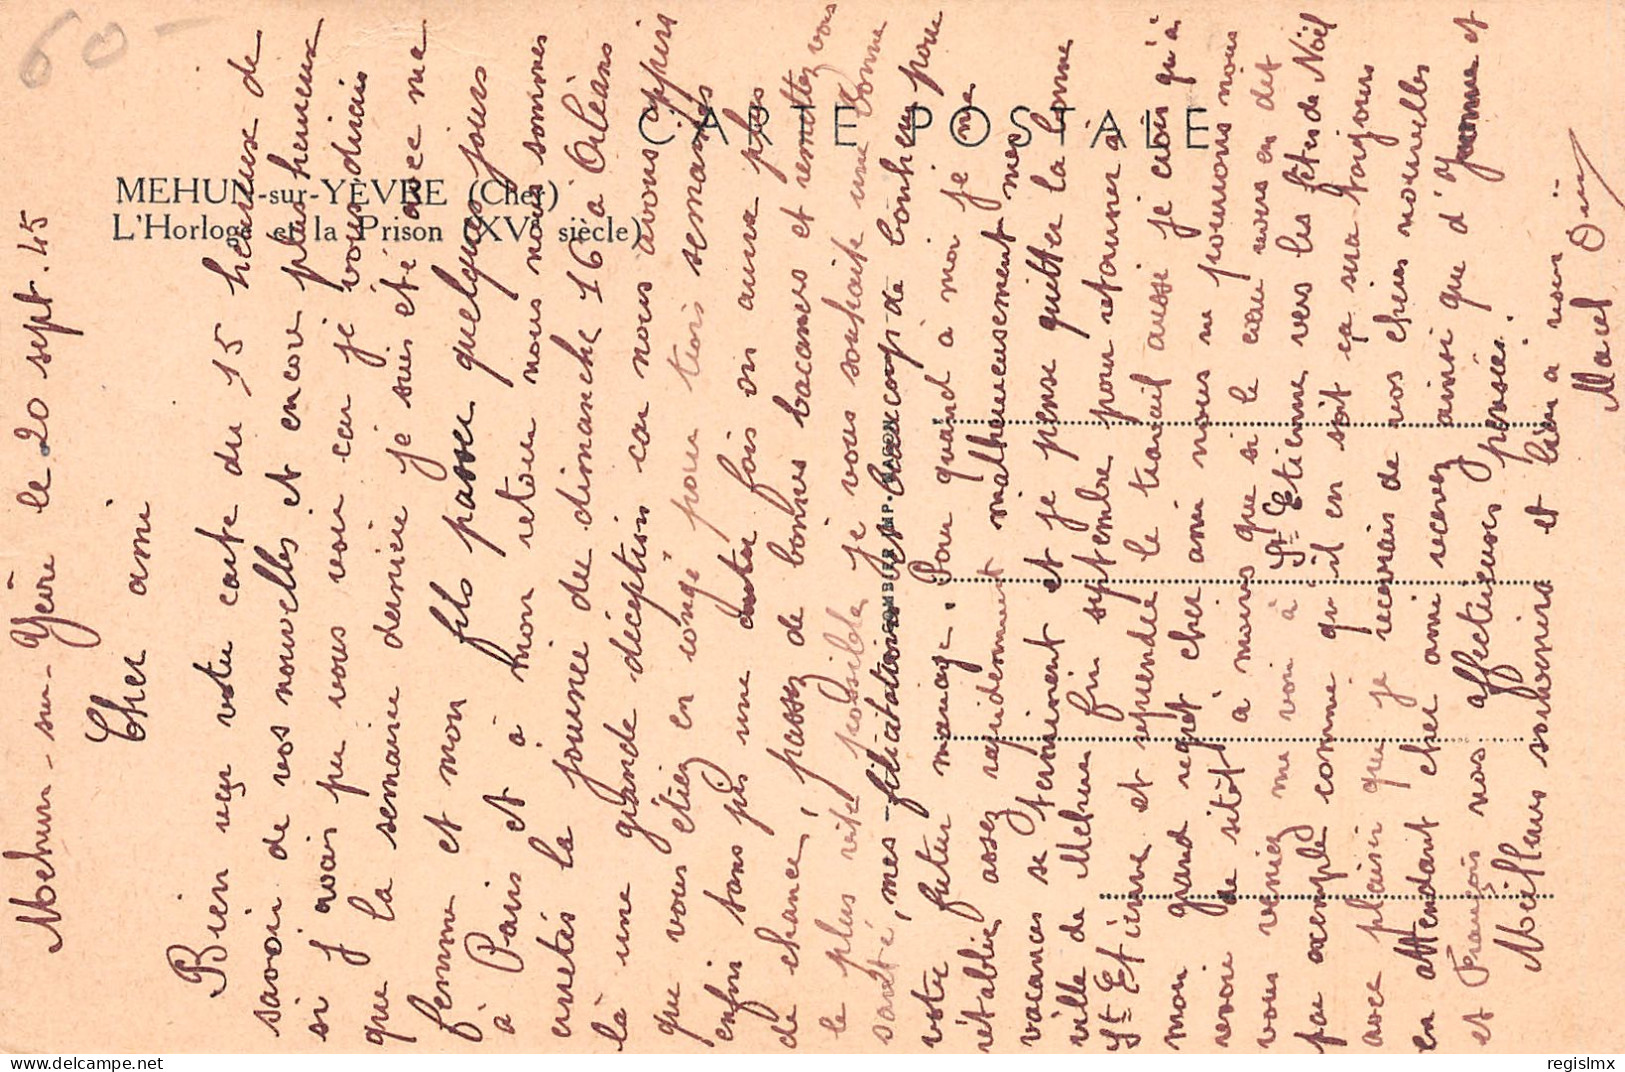 60-
CARTE POSTALE
MEHUN-sur-YÈVRE (Cher)
L'Horloge et la Prison (XVe siècle)
Mehun-sur-Yèvre le 20 sept. 45
Cher ami
Bien reçu votre carte du 15 heureux de
savoir de vos nouvelles et encore plus heureux
si j'avais pu vous voir car je vous dirais
que la semaine dernière je suis été avec ma
femme et mon fils passer quelques jours
à Paris et à mon retour nous nous sommes
arrêtés la journée du dimanche 16 à Orléans
là une grande déception car nous avons appris
que vous étiez en congé pour trois semaines
enfin sans pis une autre fois on aura plus
de chance, passez de bonnes vacances et remettez vous
le plus vite possible, je vous souhaite une bonne
santé, mes félicitations et beaucoup de bonheur pour
votre futur mariage. Pour quand à moi je me
rétablis assez rapidement malheureusement mes
vacances se terminent et je pense quitter la bonne
ville de Mehun fin septembre pour retourner à
St Etienne et reprendre le travail aussi je crois qu'à
mon grand regret cher ami nous ne pourrons nous
revoir de sitôt à moins que si le cœur vous en dit
vous veniez me voir à St Etienne vers les fêtes de Noël
par exemple comme qu'il en soit ça sera toujours
avec plaisir que je recevrais de vos chères nouvelles
en attendant cher ami recevez ainsi que d'Yvonne et
et François nos affectueuses pensées.
Meilleurs souvenirs et bien à vous
Marcel